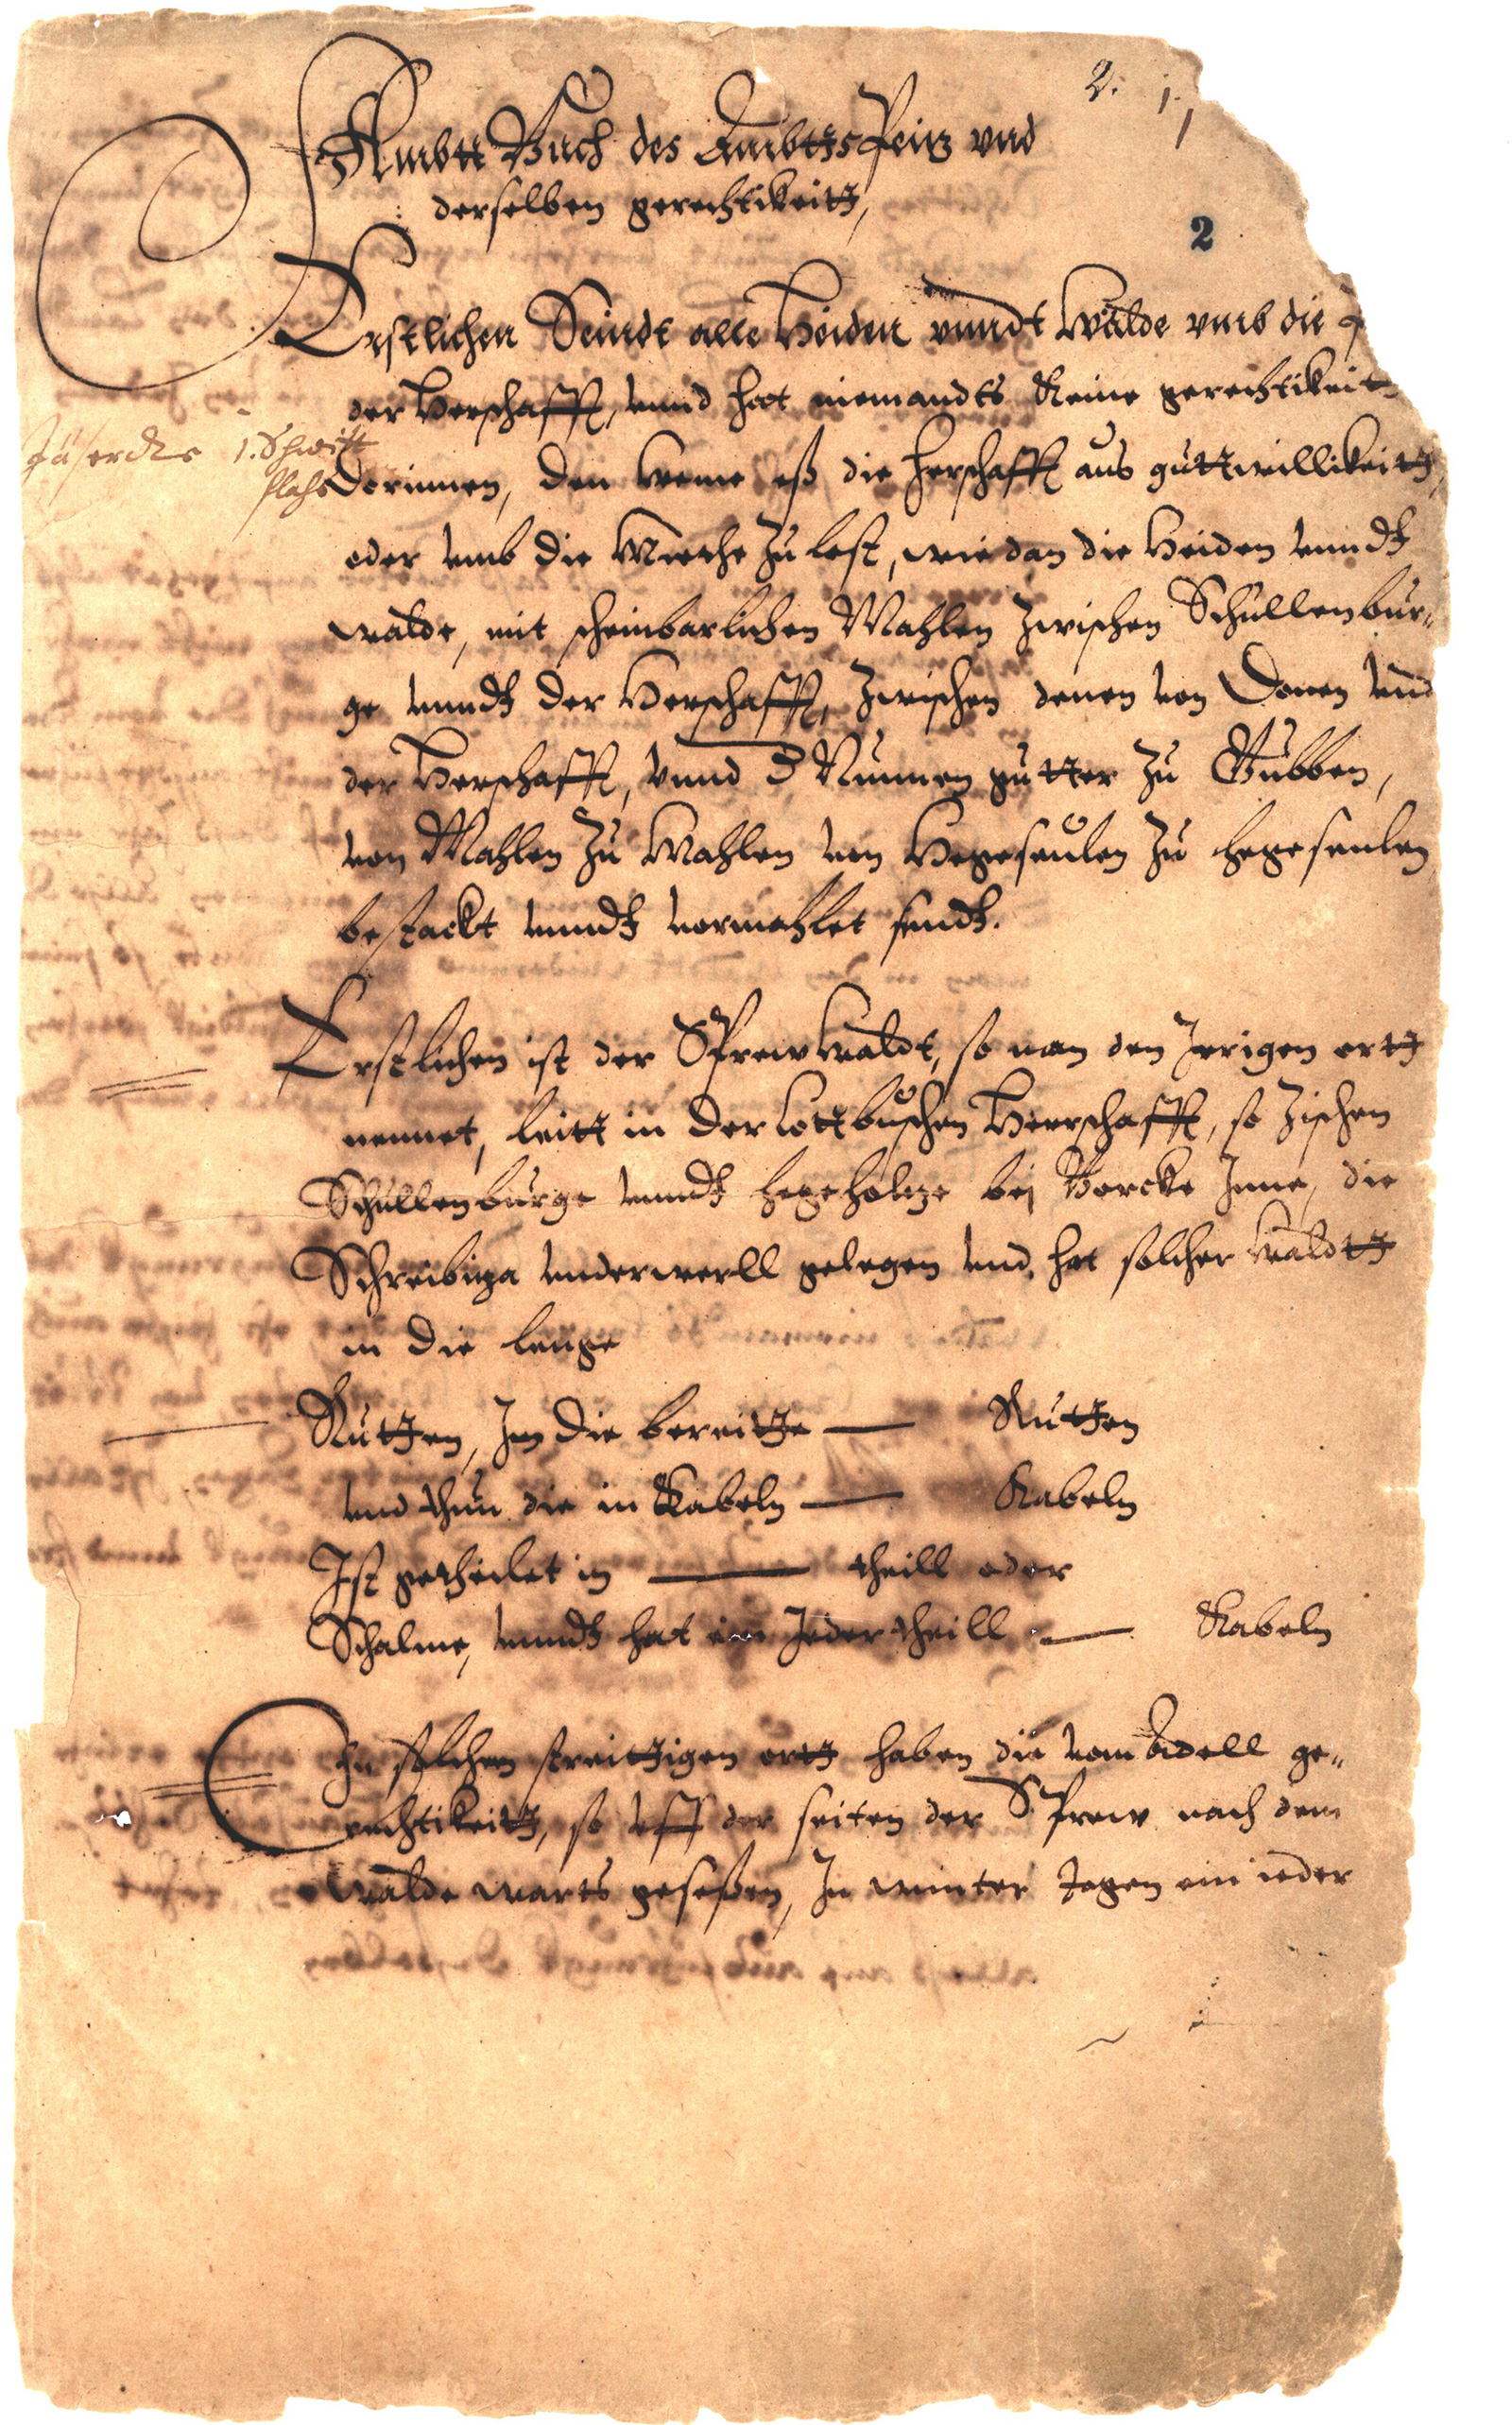 2.
2
Ambtt Buch des Ambtts Peitz vnd
derselben gerechtikeitt,
Erstlichen Seindt alle Heiden vnndt Wälde vmb die
der Herschafft, vnnd hat niemandts Keine gerechtikeit
Dorinnen, den weme eß die Herschafft aus guttwillikeitt,
oder vmb die Miethe zu lest, wie dan die Heiden vnndt
walde, mit scheinbarlichen Mahlen zwischen Schullenbur„
ge vnndt der Herschafft, zwischen denen von Donen vnd
der Herschafft, vnnd d Nunnen gutter zu Gubben,
von Mahlen zu Mahlen von Hegeseulen zu hegeseulen
bestackt vnndt vormahlet sendt.
Erstlichen ist der Sprewwaldt, so man den Irrigen ortt
nennet, leitt in der Cottbuschen Herrschafft, so zischen
Schullenburge vnndt hegeholtze bej Borcke Inne, die
Schreibitza vnderwerll gelegen vnd hat solcher waldtt
in die lenge
Rutten, Im die bereitte — Rutten
vnd thun die in Kabeln — Kabeln
Ist getheilet in — theill oder
Schalme, vnndt hat ein Jeder theill — Kabeln
In solchen streittigen ortt haben die vom Adell ge„
rechtikeitt, so vff der seiten der Sprew nach dem
walde warts geseßen, In winter tagen ein ieder